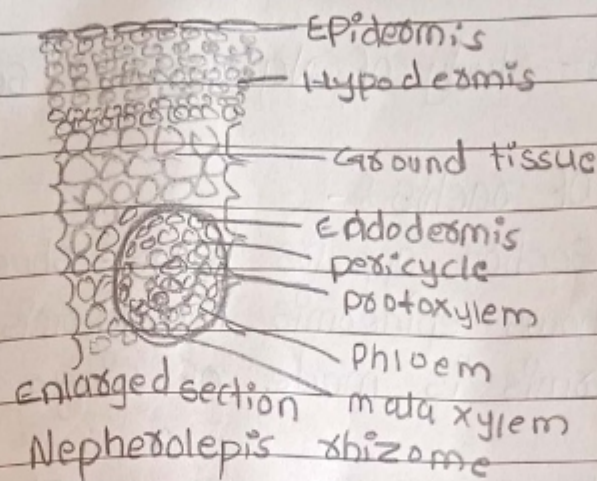 Epidermis
Hypodermis
Ground tissue
Endodermis
pericycle
protoxylem
Phloem
mata xylem
Enlarged section
Nepherolepis rhizome